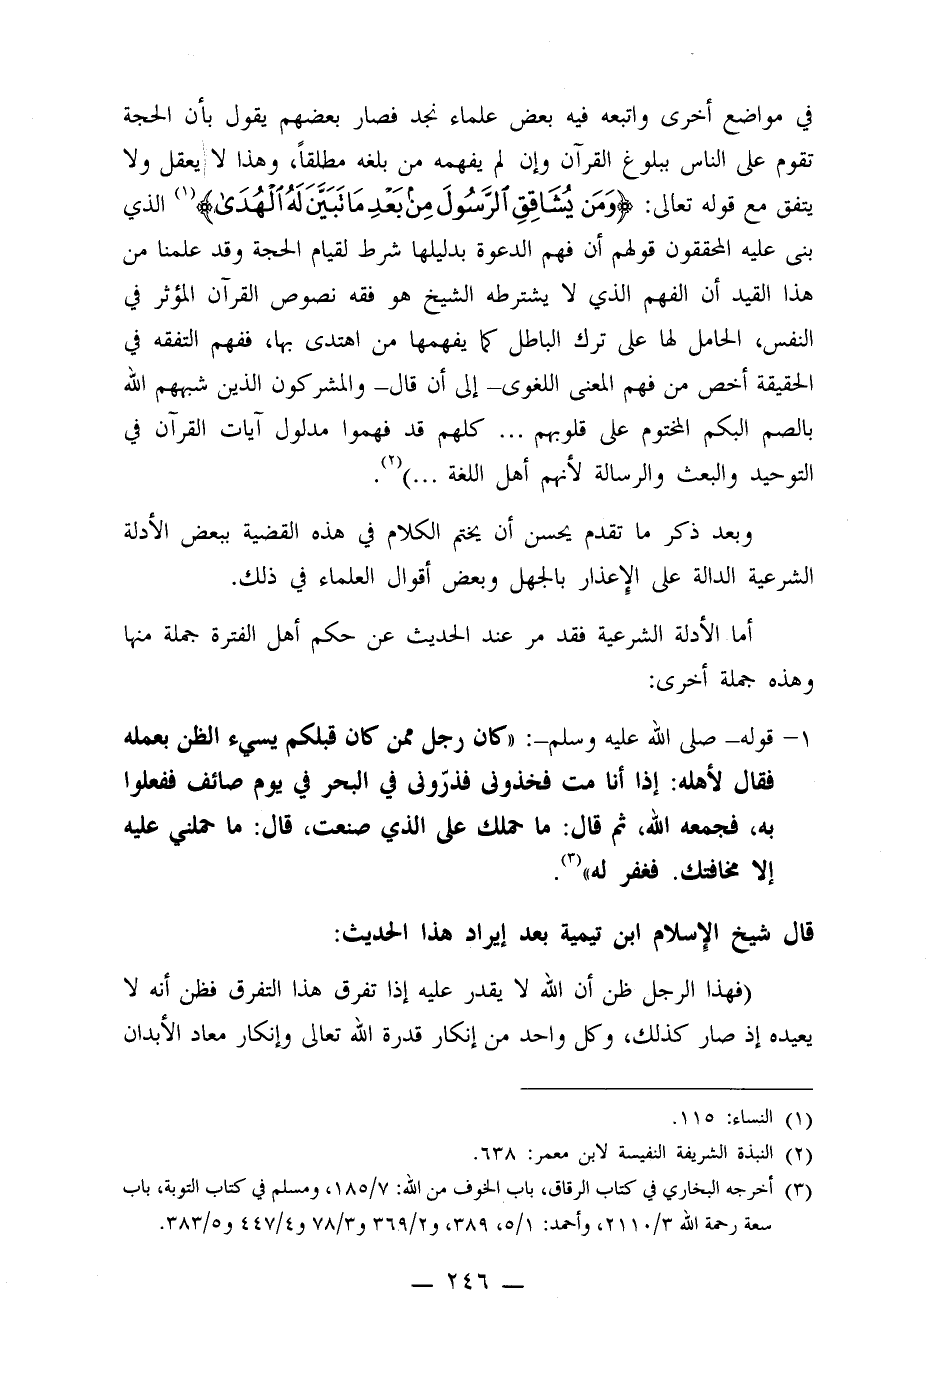 في مواضع أخرى واتبعه فيه بعض علماء نجد فصار بعضهم يقول بأن الحجة
تقوم على الناس ببلوغ القرآن وإن لم يفهمه من بلغه مطلقاً، وهذا لا يعقل ولا
يتفق مع قوله تعالى: ﴿وَمَن يُشَاقِقِ ٱلرَّسُولَ مِنۢ بَعْدِ مَا تَبَيَّنَ لَهُ ٱلْهُدَىٰ﴾(١) الذي
بنى عليه المحققون قولهم أن فهم الدعوة بدليلها شرط لقيام الحجة وقد علمنا من
هذا القيد أن الفهم الذي لا يشترطه الشيخ هو فقه نصوص القرآن المؤثر في
النفس، الحامل لها على ترك الباطل كما يفهمها من اهتدى بها، ففهم التفقه في
الحقيقة أخص من فهم المعنى اللغوى_ إلى أن قال_ والمشركون الذين شبههم الله
بالصم البكم المختوم على قلوبهم ... كلهم قد فهموا مدلول آيات القرآن في
التوحيد والبعث والرسالة لأنهم أهل اللغة ...)(٢).
وبعد ذكر ما تقدم يحسن أن يختم الكلام في هذه القضية ببعض الأدلة
الشرعية الدالة على الإعذار بالجهل وبعض أقوال العلماء في ذلك.
أما الأدلة الشرعية فقد مر عند الحديث عن حكم أهل الفترة جملة منها
وهذه جملة أخرى:
١– قوله_ صلى الله عليه وسلم_: «كان رجل ممن كان قبلكم يسيء الظن بعمله
فقال لأهله: إذا أنا مت فخذونى فذرّونى في البحر في يوم صائف ففعلوا
به، فجمعه الله، ثم قال: ما حملك على الذي صنعت، قال: ما حملني عليه
إلا مخافتك. فغفر له»(٣).
قال شيخ الإسلام ابن تيمية بعد إيراد هذا الحديث:
(فهذا الرجل ظن أن الله لا يقدر عليه إذا تفرق هذا التفرق فظن أنه لا
يعيده إذ صار كذلك، وكل واحد من إنكار قدرة الله تعالى وإنكار معاد الأبدان
(١) النساء: ١١٥.
(٢) النبذة الشريفة النفيسة لابن معمر: ٦٣٨.
(٣) أخرجه البخاري في كتاب الرقاق، باب الخوف من الله: ١٨٥/٧، ومسلم في كتاب التوبة، باب
سعة رحمة الله ٢١١٠/٣، وأحمد: ٥/١، ٣٨٩، و٣٦٩/٢ و٧٨/٣ و٤٤٧/٤ و٣٨٣/٥.
_ ٢٤٦ _